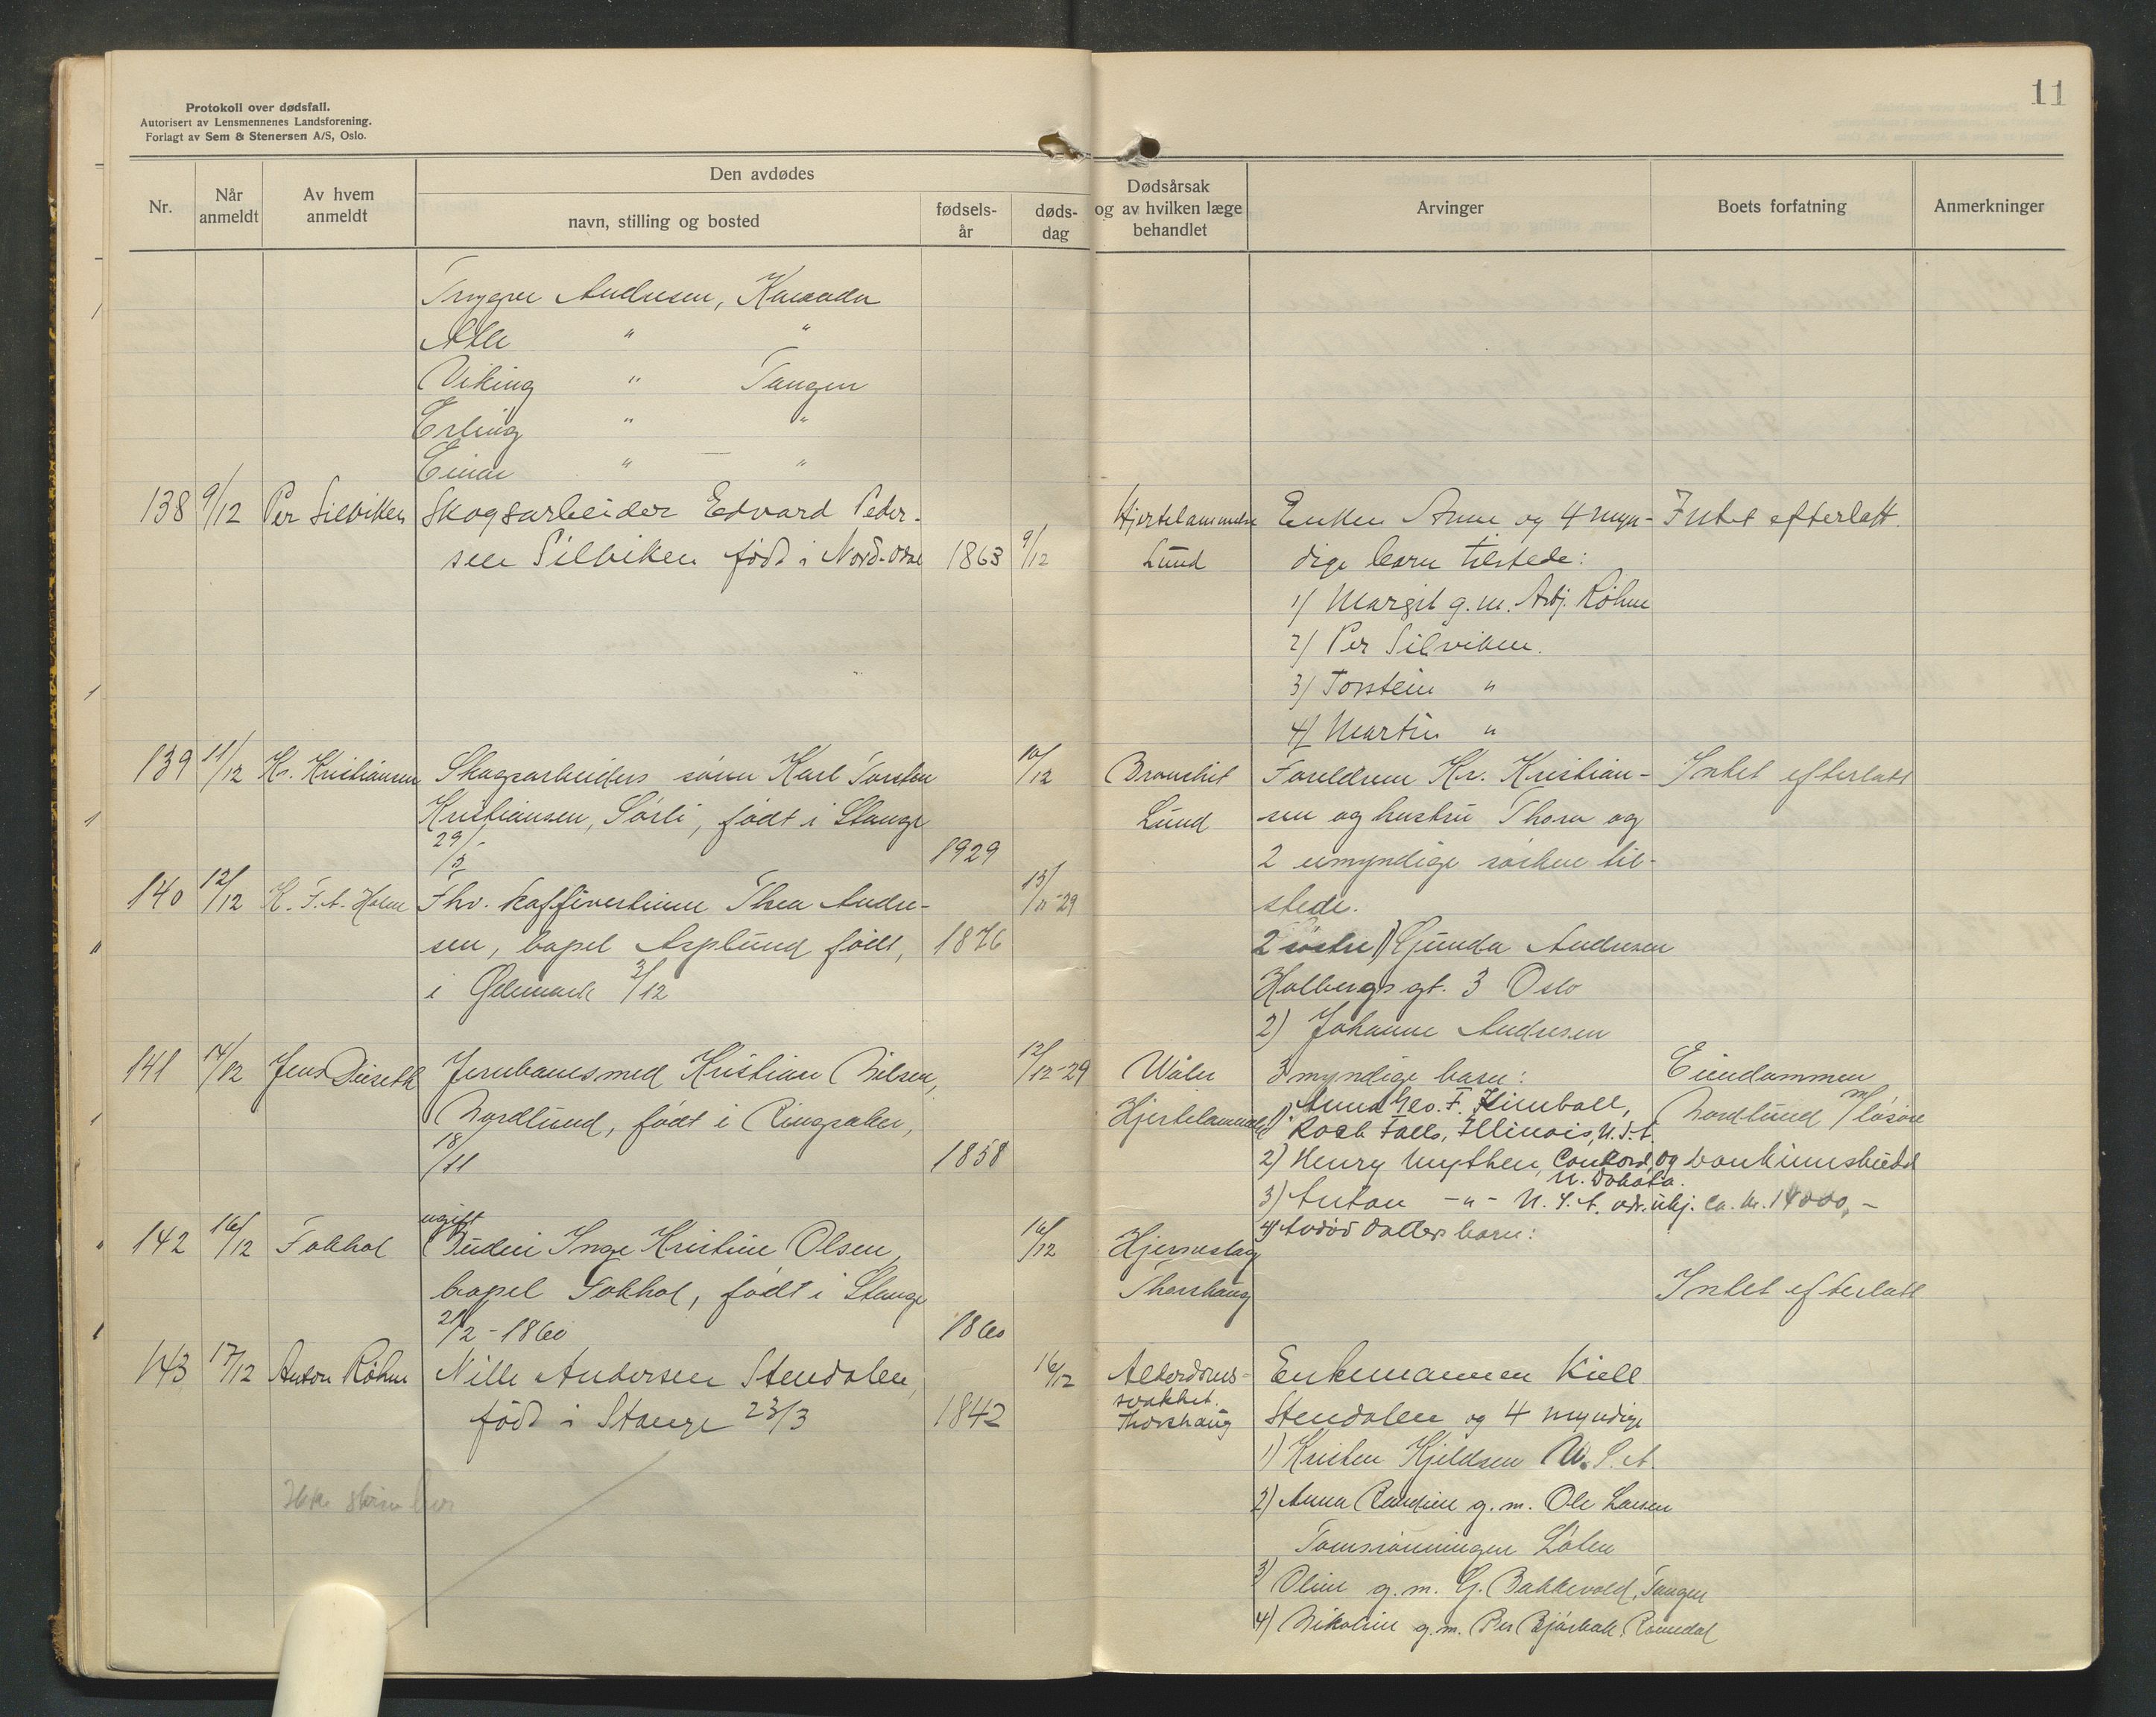 11
Protokoll over dødsfall.
Autorisert av Lensmennenes Landsforening.
Forlagt av Sem & Stenersen A/S, Oslo.
Nr.
Når anmeldt
Av hvem anmeldt
Den avdødes
navn, stilling og bosted
fødsels-år
døds-dag
Dødsårsak og av hvilken læge behandlet
Arvinger
Boets forfatning
Anmerkninger
Trygve Andresen, Kanada
" "
Viking " Tangen
Erling " "
Einar " "
138 9/12 Per Silviken Skogsarbeider Edvard Peder-
sen Silviken født i Nord-Odal 1863 9/12
Hjertelammelse
Lund
Enken Anne og 4 myn-
dige barn tilstede:
1/ Margit g.m. Arbj. Röhne
2/ Per Silviken.
3/ Torstein "
4/ Martin "
Intet efterlatt.
139 11/12 Kr. Kristiansen Skogsarbeiders sønn Karl Torsten
Kristiansen, Sörli, født i Stange
29/5 1929
10/12
Bronchit
Lund
Foreldrene Kr. Kristian-
sen og hustru Thora og
2 umyndige søsken til-
stede.
Intet efterlatt
140 12/12 K. F. A. Holm Fhv. kaffivertinne Thea Andre-
sen, bopel Asplund født, 1876
i 3/12
13/11-29
2 søstre 1) Gunda Andresen
Holbergs gt. 3 Oslo
2) Johanne Andresen
141 14/12 Jens Diseth Jernbanesmed Kristian Nilsen,
Nordlund, født i Ringsaker,
18/11 1858
12/12-29
Wåler
Hjertelammelse
3 myndige barn:
1) Anna Geo. F. Kimball,
Rock Falls, Illinois, U.S.A.
2) Henry Concord,
N. Dakota.
3) Anton -"- U.S.A. adr. ukj.
4) Avdød datters barn:
Eiendommen
Nordlund m/ løsøre
og bankinnskudd
ca. kr. 14000,-
142 16/12 Fokhol ugift
Budeie Inge Kristine Olsen,
bopel Fokhol, født i Stange
21/2-1860 1860
16/12
Hjerneslag
Thorshaug
Intet efterlatt
143 17/12 Anton Röhne Nille Andersen Stendalen,
født i Stange 23/3 1842
16/12
Alderdoms-
svakhet.
Thorshaug
Enkemannen Kiell
Stendalen og 4 myndige
1) Kristen Kjeldsen U.S.A.
2) Anna Randine g.m. Ole Larsen
Løten
3) Oline g.m. G. Bakkevold, Tangen
4) Nikoline g.m. Per Bjørbak. Romedal
Ikke